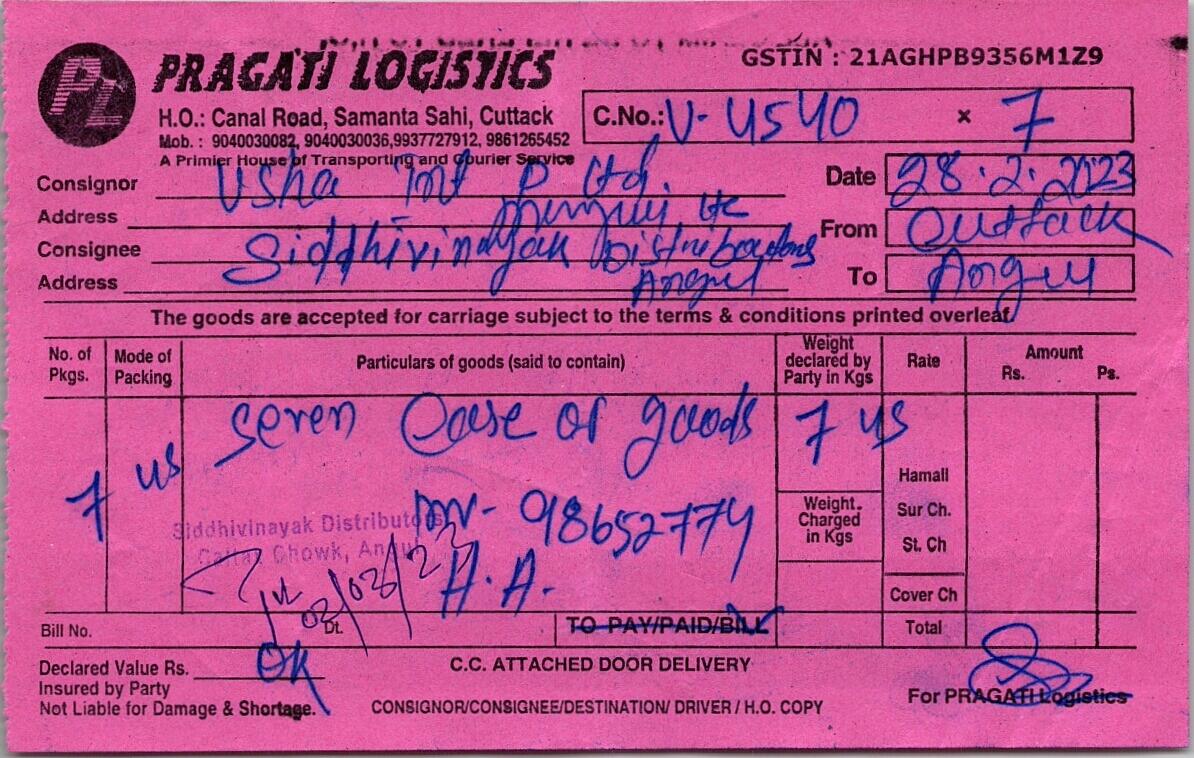 PRAGATI LOGISTICS
GSTIN : 21AGHPB9356M1Z9
H.O.: Canal Road, Samanta Sahi, Cuttack
Mob. : 9040030082, 9040030036,9937727912, 9861265452
A Primier House of Transporting and Courier Service
C.No.: V- 4540 x 7
Consignor Usha Int P Ltd.
Date 28.2.2023
Address
From Cuttack
Consignee Siddhivinayak Distributors
Address Angul
To Angul
The goods are accepted for carriage subject to the terms & conditions printed overleaf
No. of Pkgs. Mode of Packing Particulars of goods (said to contain) Weight declared by Party in Kgs Rate Amount Rs. Ps.
7 us seven Case of goods 7 us
Hamali
inv- 98652774
Weight. Charged in Kgs
Sur Ch.
Siddhivinayak Distributors
Chowk, Angul
St. Ch
H.A.
02/03/23
Cover Ch
Bill No. Dt. TO PAY/PAID/BILL Total
OK
Declared Value Rs. C.C. ATTACHED DOOR DELIVERY
Insured by Party
Not Liable for Damage & Shortage.
CONSIGNOR/CONSIGNEE/DESTINATION/ DRIVER / H.O. COPY
For PRAGATI Logistics